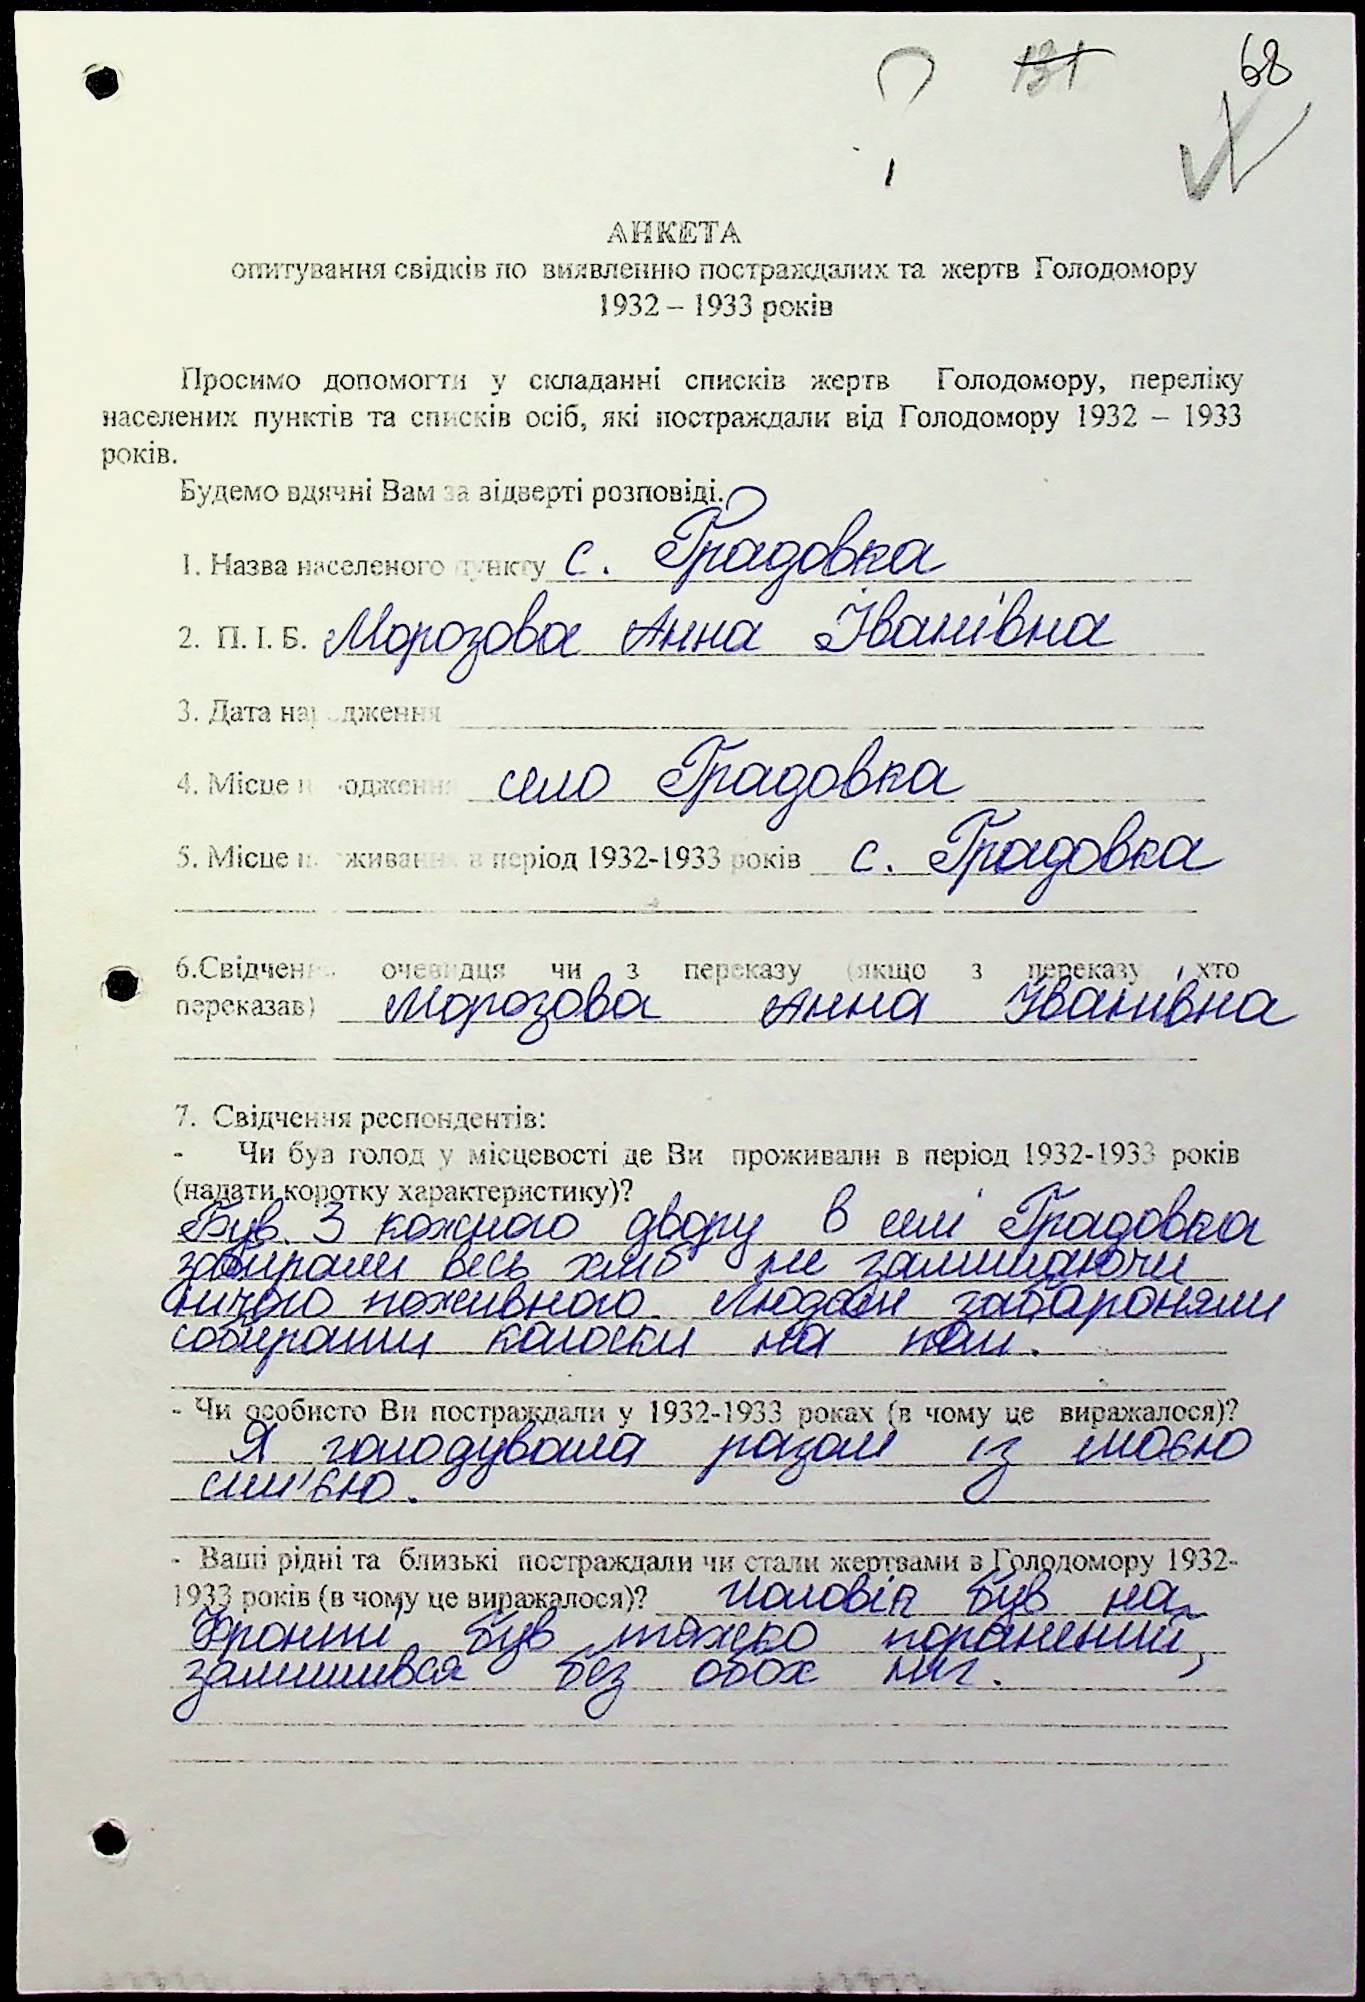 131 68
АНКЕТА
опитування свідків по виявленню постраждалих та жертв Голодомору
1932 – 1933 років
Просимо допомогти у складанні списків жертв Голодомору, переліку
населених пунктів та списків осіб, які постраждали від Голодомору 1932 – 1933
років.
Будемо вдячні Вам за відверті розповіді.
1. Назва населеного пункту с. Градовка
2. П. І. Б. Морозова Анна Іванівна
3. Дата народження
4. Місце народження село Градовка
5. Місце проживання в період 1932-1933 років с. Градовка
6.Свідчення очевидця чи з переказу (якщо з переказу, хто
переказав) Морозова Анна Іванівна
7. Свідчення респондентів:
- Чи був голод у місцевості де Ви проживали в період 1932-1933 років
(надати коротку характеристику)?
Був. З кожного двору в селі Градовка
забирали весь хліб не залишаючи
нічого поживного. Людям забароняли
собирати колоски на полі.
- Чи особисто Ви постраждали у 1932-1933 роках (в чому це виражалося)?
Я голодувала разом із моєю
сім'єю.
- Ваші рідні та близькі постраждали чи стали жертвами в Голодомору 1932-
1933 років (в чому це виражалося)? Чоловік був на
фронті, був тяжко поранений,
залишився без обох ніг.